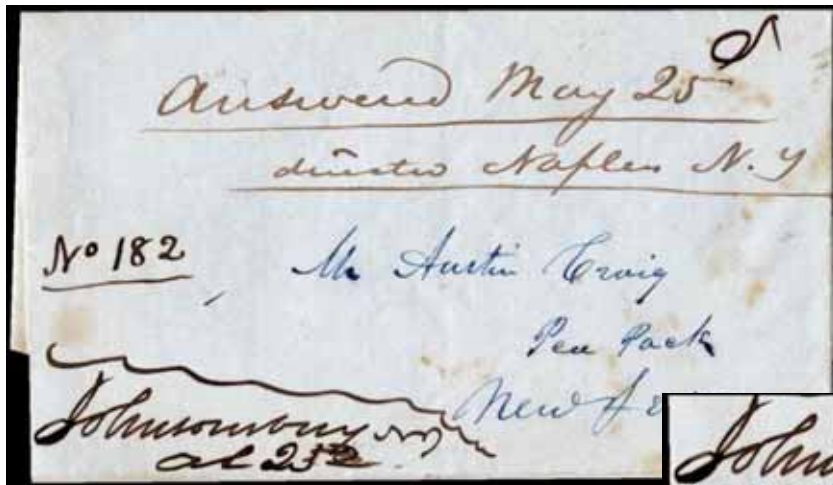 Answered May 25
directed Naples N. Y
No 182
Mr Austin Craig
Pea Pack
New Je
Johnsonsburg NJ
25
John